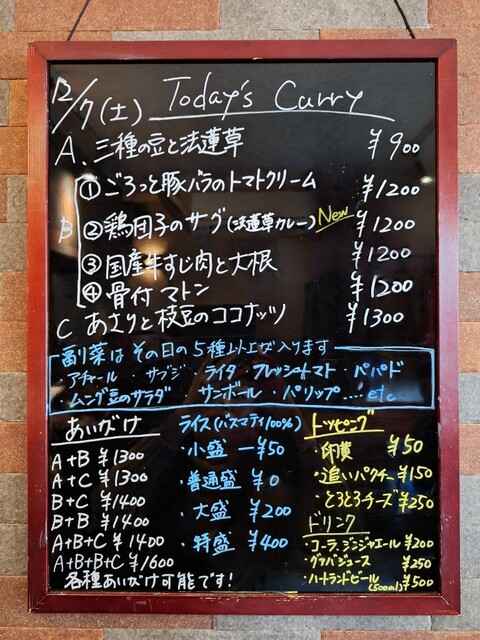 12/7(土) Today's Curry
A、三種の豆と法蓮草 ¥900
B ①ごろっと豚バラのトマトクリーム ¥1200
②鶏団子のサグ(法蓮草カレー) New ¥1200
③国産牛すじ肉と大根 ¥1200
④骨付マトン ¥1200
C あさりと枝豆のココナッツ ¥1300
副菜はその日の5種以上が入ります
アチャール・サブジ・ライタ・フレッシュトマト・パパド
・ムング豆のサラダ サンボール・パリップ....etc
あいがけ
A+B ¥1300
A+C ¥1300
B+C ¥1400
B+B ¥1400
A+B+C ¥1400
A+B+B+C ¥1600
各種あいがけ可能です!
ライス(バスマティ100%)
・小盛 ー¥50
・普通盛 ¥0
・大盛 ¥200
・特盛 ¥400
トッピング
・卵黄 ¥50
・追いパクチー ¥150
・とろとろチーズ ¥250
ドリンク
・コーラ、ジンジャエール ¥200
・グァバジュース ¥250
・ハートランドビール(500ml) ¥500